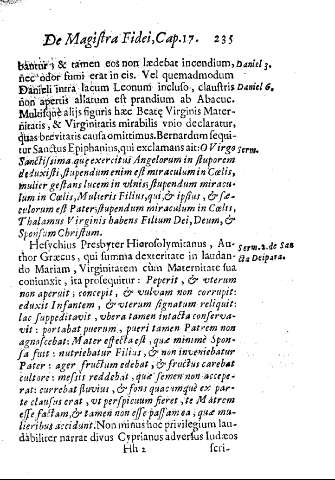 De Magistra Fidei, Cap. 17. 235
bantur; & tamen eos non lædebat incendium, Daniel 3.
nec odor fumi erat in eis. Vel quemadmodum
Danieli intra lacum Leonum incluso, claustris Daniel 6.
non apertis allatum est prandium ab Abacuc.
Multisque alijs figuris hæc Beatę Virginis Mater-
nitatis, & Virginitatis mirabilis vnio declaratur,
quas brevitatis causa omittimus. Bernardum sequi-
tur Sanctus Epiphanius, qui exclamans ait: O Virgo Serm.
Sanctissima que exercitus Angelorum in stuporem
deduxisti, stupendum enim est miraculum in Cœlis,
mulier gestans lucem in vlnis; stupendum miracu-
lum in Cœlis, Mulieris Filius, qui, & ipsius, & sæ-
culorum est Pater; stupendum miraculum in Cœlis,
Thalamus Virginis habens Filium Dei, Deum, &
Sponsum Christum.
Hesychius Presbyter Hierosolymitanus, Au- Serm. 2. de San
thor Græcus, qui summa dexteritate in laudan- cta Deipara.
do Mariam, Virginitatem cùm Maternitate sua
coniunxit, ita prosequitur: Peperit, & vterum
non aperuit: concepit, & vulvam non corrupit:
eduxit Infantem, & vterum signatum reliquit:
lac suppeditavit, vbera tamen intacta conserva-
vit: portabat puerum, pueri tamen Patrem non
agnoscebat: Mater effecta est, quæ minimè Spon-
sa fuit: nutriebatur Filius, & non inveniebatur
Pater: ager fructum edebat, & fructus carebat
cultore: messis reddebat, quæ semen non accepe-
rat: currebat fluvius, & fons quacumque ex par-
te clausus erat, vt perspicuum fieret, te Matrem
esse factam, & tamen non esse passam ea, quæ mu-
lieribus accidunt. Non minus hoc privilegium lau-
dabiliter narrat divus Cyprianus adversus Iudæos
Hh 2 scri-